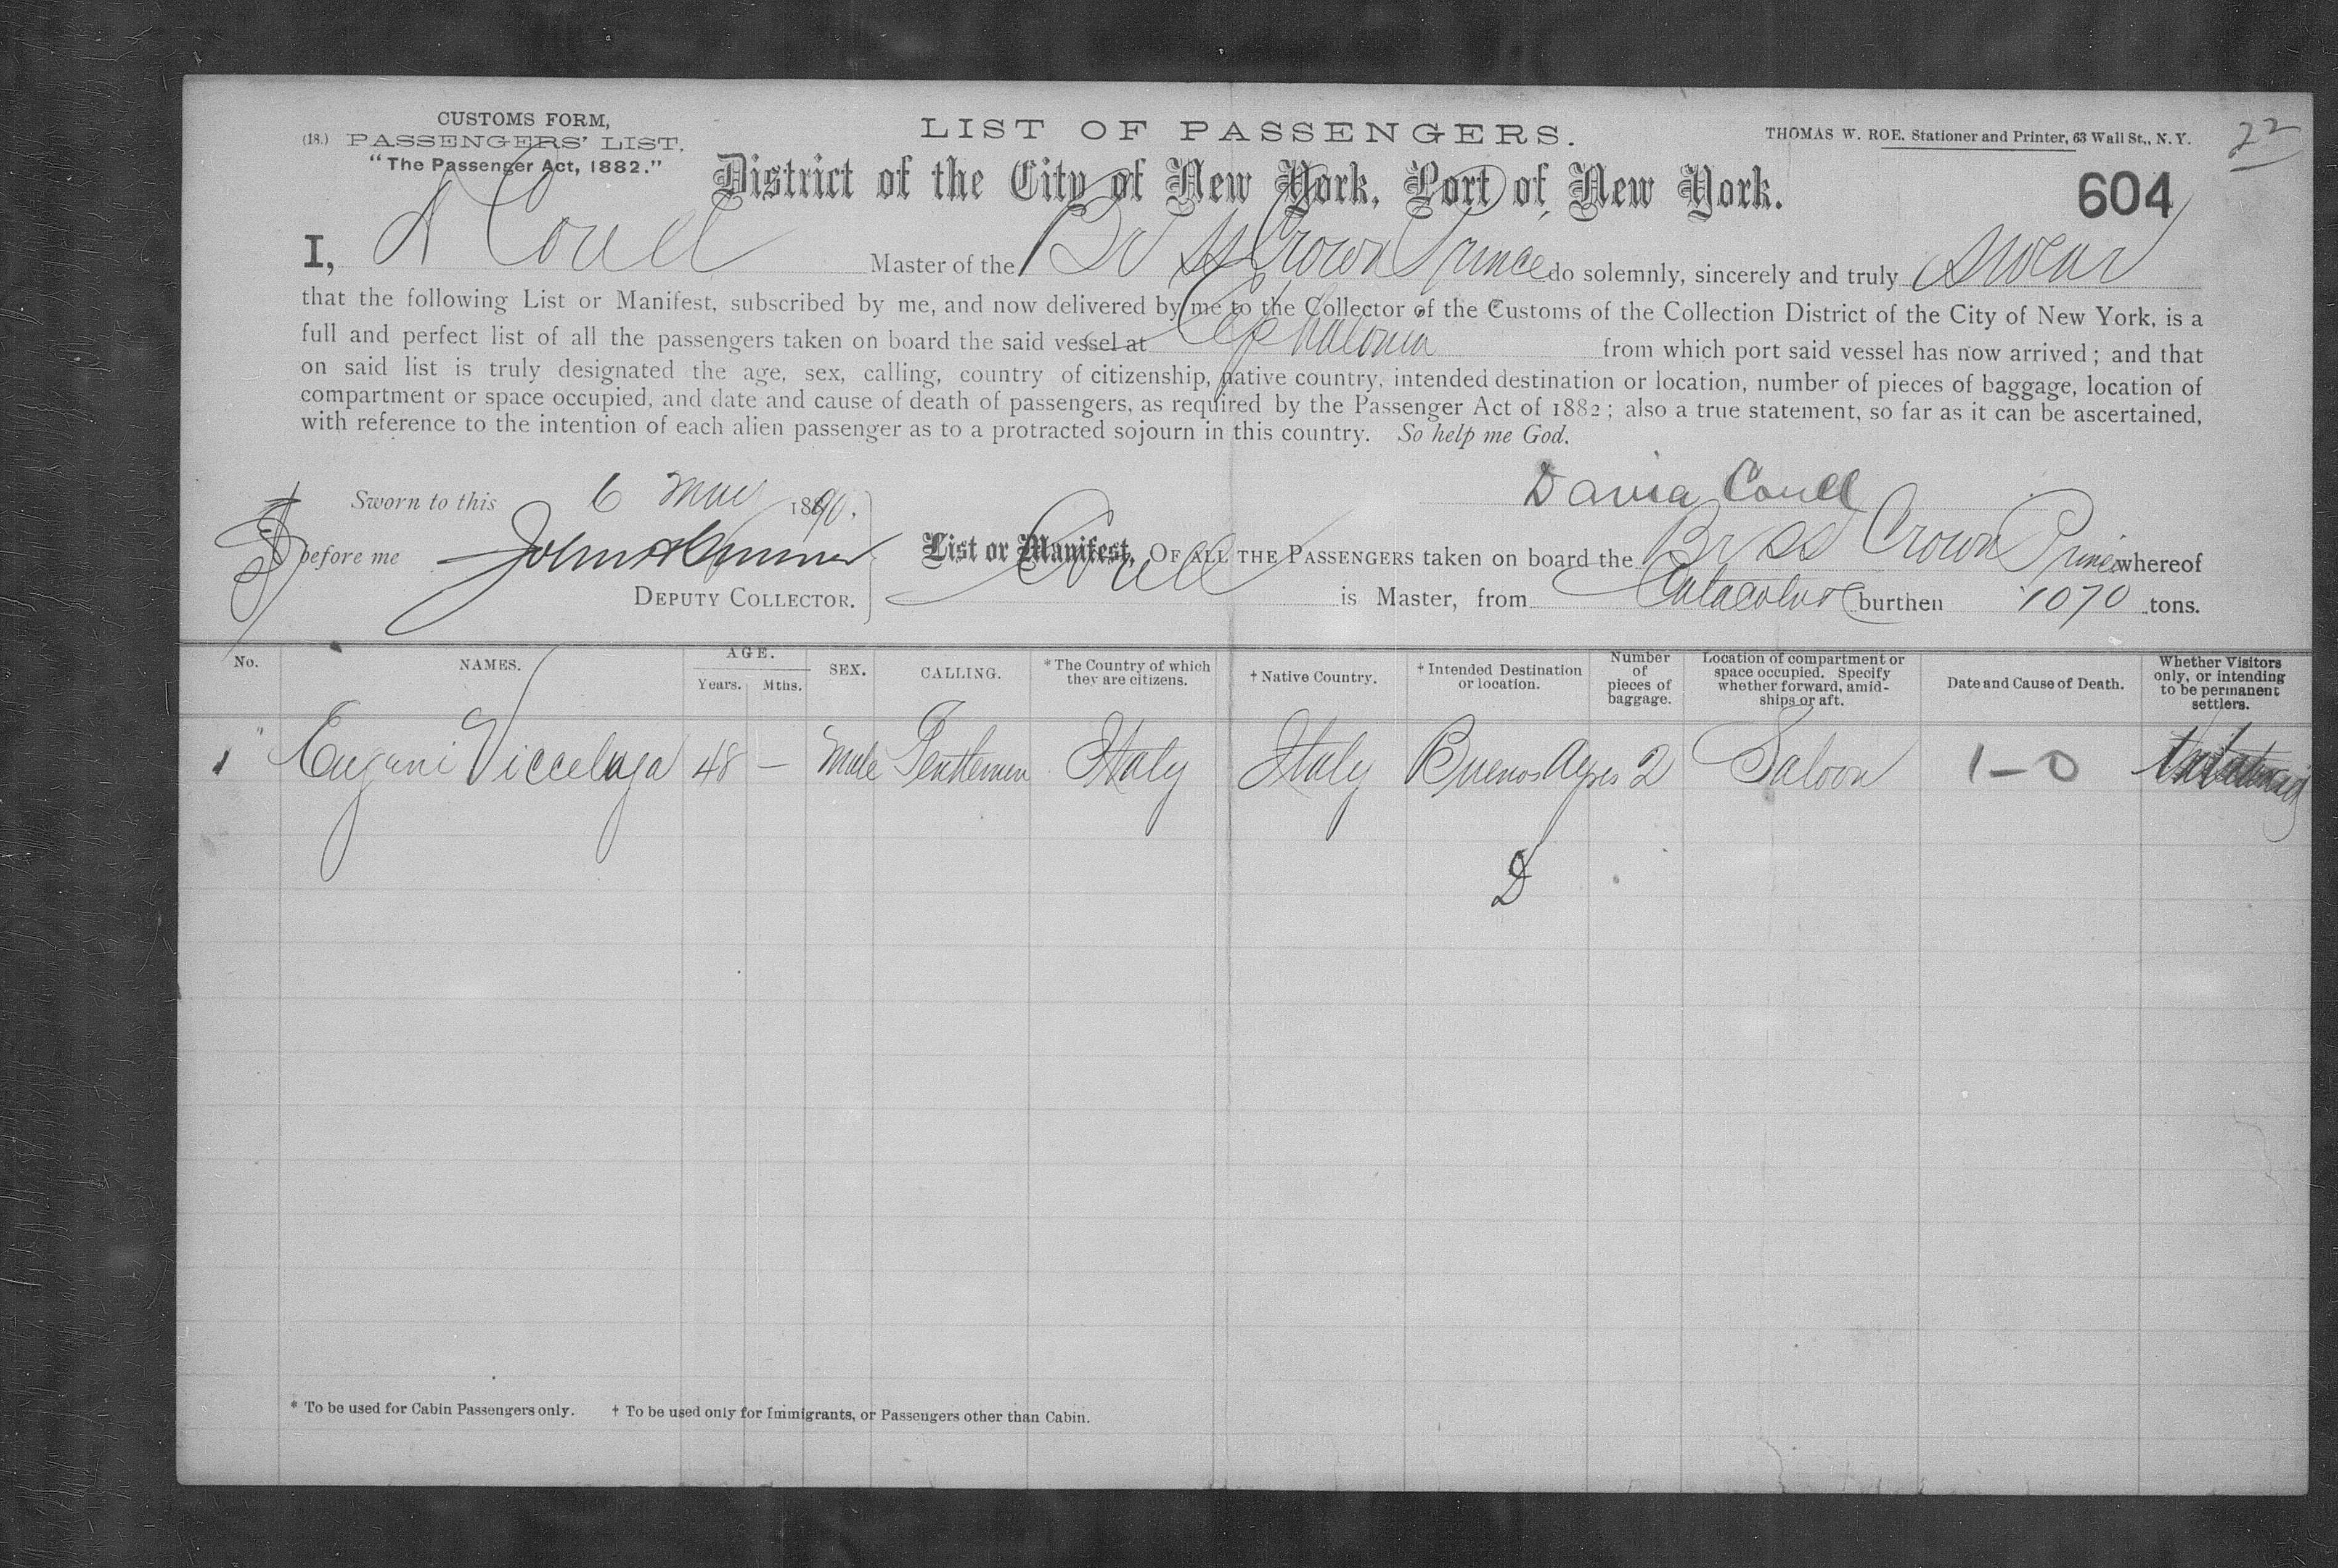 CUSTOMS FORM,
(18.) PASSENGERS' LIST.
"The Passenger Act, 1882."
LIST OF PASSENGERS.
THOMAS W. ROE, Stationer and Printer, 63 Wall St., N. Y.
22
District of the City of New York, Port of New York.
604
I, D Coull Master of the Br SS Crown Prince do solemnly, sincerely and truly swear
that the following List or Manifest, subscribed by me, and now delivered by me to the Collector of the Customs of the Collection District of the City of New York, is a
full and perfect list of all the passengers taken on board the said vessel at Cephalonia from which port said vessel has now arrived; and that
on said list is truly designated the age, sex, calling, country of citizenship, native country, intended destination or location, number of pieces of baggage, location of
compartment or space occupied, and date and cause of death of passengers, as required by the Passenger Act of 1882; also a true statement, so far as it can be ascertained,
with reference to the intention of each alien passenger as to a protracted sojourn in this country. So help me God.
David Coull
Sworn to this 6 May 1890.
before me John
DEPUTY COLLECTOR.
List or Manifest, OF ALL THE PASSENGERS taken on board the Br SS Crown Prince whereof
Coull is Master, from burthen 1070 tons.
No. NAMES. AGE. Years. Mths. SEX. CALLING. * The Country of which they are citizens. † Native Country. † Intended Destination or location. Number of pieces of baggage. Location of compartment or space occupied. Specify whether forward, amidships or aft. Date and Cause of Death. Whether Visitors only, or intending to be permanent settlers.
1 Eugeni 48 — Male Gentleman Italy Italy Buenos Ayres 2 Saloon 1-0
D
* To be used for Cabin Passengers only. † To be used only for Immigrants, or Passengers other than Cabin.